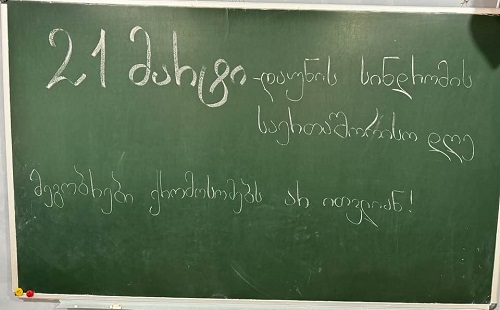 21 მარტი -დაუნის სინდრომის
საერთაშორისო დღე
მეგობრები ქრომოსომებს არ ითვლიან!